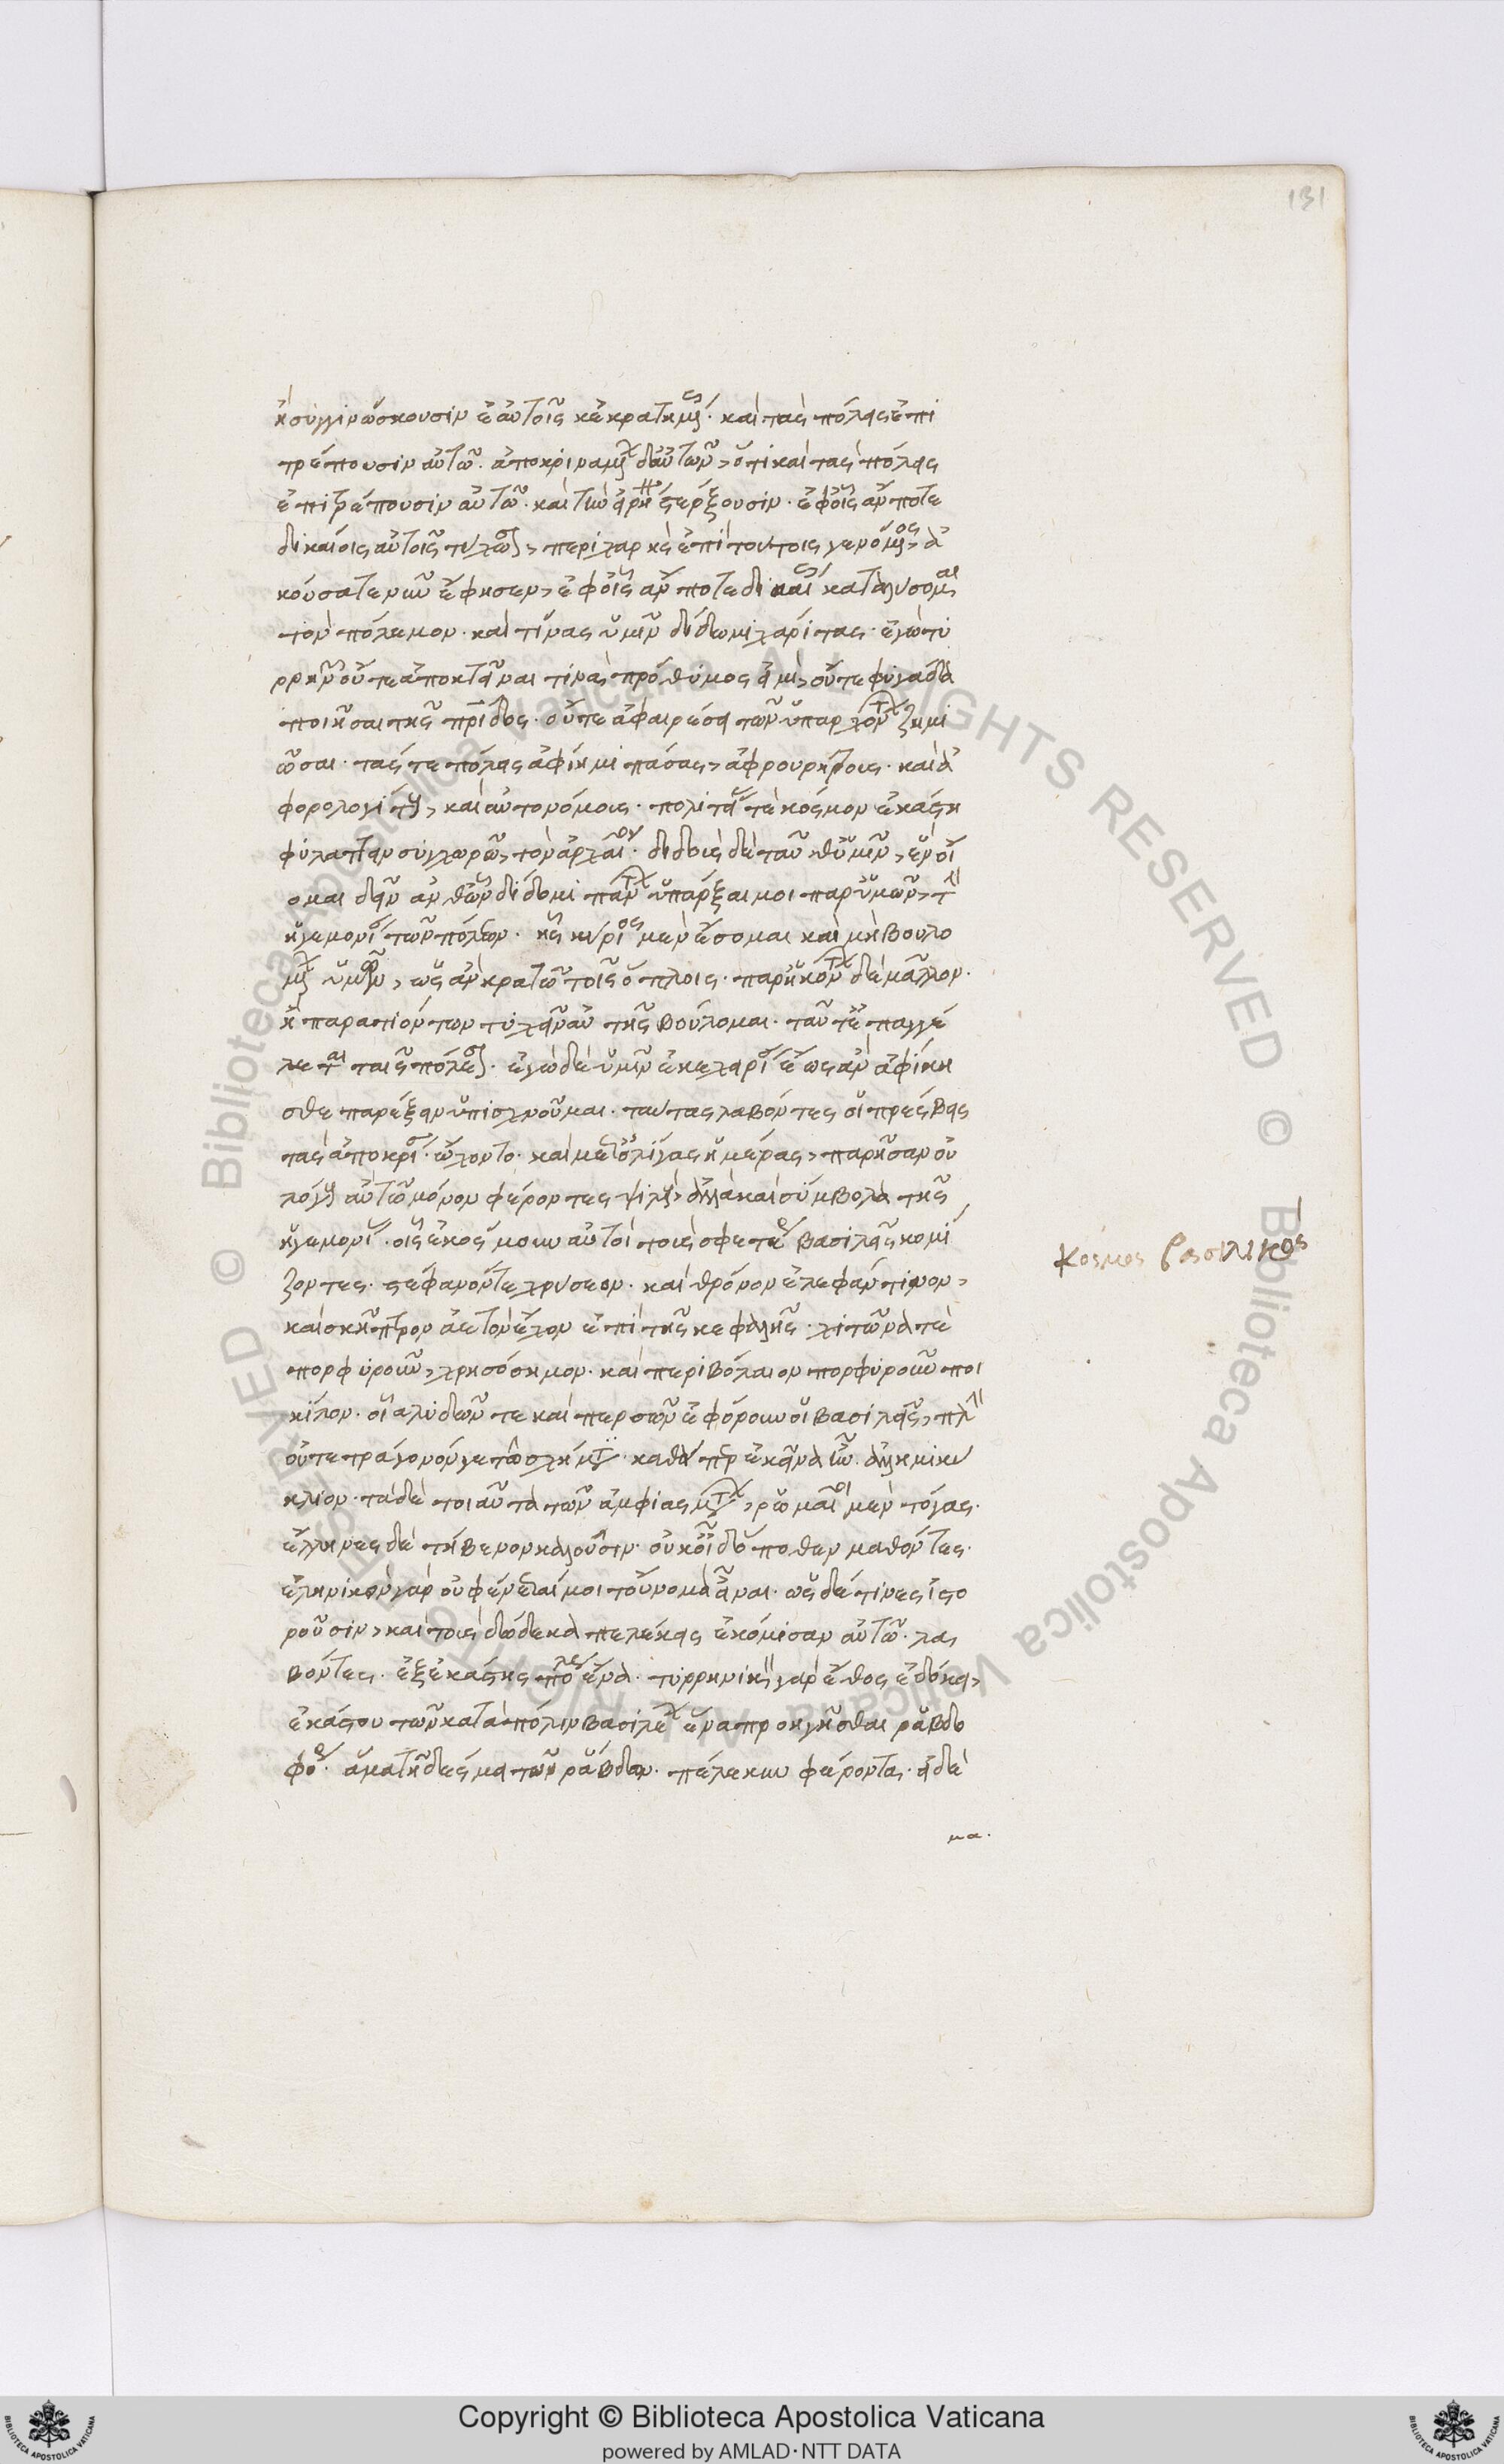 131
ἢ συγγινώσκουσιν ἑαυτοῖς κεκρατημένοις. καὶ τὰς πόλεις ἐπι
τρέπουσιν αὐτῶ. ἀποκριναμένων δ' αὐτῶν, ὅτι καὶ τὰς πόλεις
ἐπιτρέπουσιν αὐτῶ. καὶ τὴν εἰρήνην στέρξουσιν. ἐφ' οἷς ἄν ποτε
δικαίοις αὐτοῖς περιχαρὴς ἐπὶ τούτοις γενόμενος, ἀ
κούσατε νῦν ἔφησεν, ἐφ' οἷς ἄν ποτε δικαίοις καταλύσομαι
τὸν πόλεμον. καὶ τίνας ὑμῖν δίδωμι χάριτας. ἐγὼ τυ
ρρηνῶν οὔτε ἀποκτεῖναι τινὰς πρόθυμος εἰμὶ, οὔτε φυγάδα
ποιῆσαι τῆς πατρίδος. οὔτε ἀφαιρέσει τῶν ὑπαρχόντων ζημι
ῶσαι. τάς τε πόλεις ἀφίημι πάσας, ἀφρουρήτους. καὶ ἀ
φορολογήτους, καὶ αὐτονόμους. πολιτείας τε κόσμον ἑκάστη
φυλάττειν συγχωρῶ, τὸν ἀρχαῖον. διδοὺς δὲ ταῦθ' ὑμῖν, ἓν οἴ
ομαι δεῖν ἀνθ' ὧν δίδωμι πάντων ὑπάρξαι μοι παρ' ὑμῶν, τὴν
ἡγεμονίαν τῶν πόλεων. ἧς κύριος μὲν ἔσομαι καὶ μὴ βουλο
μένων ὑμῶν, ἕως ἂν κρατῶ τοῖς ὅπλοις. παρ' ἑκόντων δὲ μᾶλλον.
ἢ παρ' ἀκόντων τυχεῖν αὐτῆς βούλομαι. ταῦτ' ἐπαγγέ
λετε ταῖς πόλεσιν. ἐγὼ δὲ ὑμῖν ἐκεχειρίαν ἕως ἂν ἀφίκη
σθε παρέξειν ὑπισχνοῦμαι. ταύτας λαβόντες οἱ πρέσβεις
τὰς ἀποκρίσεις. ὤχοντο. καὶ μετ' ὀλίγας ἡμέρας, παρῆσαν οὐ
λόγους αὐτῶ μόνον φέροντες ψιλοὺς, ἀλλὰ καὶ σύμβολα τῆς
ἡγεμονίας. οἷς ἐκόσμουν αὐτοὶ τοὺς σφετέρους βασιλεῖς κομί
ζοντες. στέφανόν τε χρύσεον. καὶ θρόνον ἐλεφάντινον,
καὶ σκῆπτρον ἀετὸν ἔχον ἐπὶ τῆς κεφαλῆς. χιτῶνά τε
πορφυροῦν, χρυσόσημον. καὶ περιβόλαιον πορφυροῦν ποι
κίλον. οἷα λυδῶν τε καὶ περσῶν ἐφόρουν οἱ βασιλεῖς, πλὴν
οὐ τετράγωνόν γε τῶ σχήματι. καθάπερ ἐκεῖνα ἦν. ἀλλ' ἡμικύ
κλιον. τὰ δὲ τοιαῦτα τῶν ἀμφιεσμάτων, ρωμαῖοι μὲν τόγας.
ἕλληνες δὲ τήβεννον καλοῦσιν. οὐκ οἶδ' ὁπόθεν μαθόντες.
ἑλληνικὸν γὰρ οὐ φαίνεται μοι τοὔνομα εἶναι. ὡς δέ τινες ἱστο
ροῦσιν, καὶ τοὺς δώδεκα πελέκεις ἐκόμισαν αὐτῶ. λα
βόντες. ἐξ ἑκάστης πόλεως ἕνα. τυρρηνικὸν γὰρ ἔθος ἐδόκει,
ἑκάστου τῶν κατὰ πόλιν βασιλέων ἕνα προηγεῖσθαι ῥαβδο
φόρον. ἅμα τῆ δέσμη τῶν ῥάβδων. πέλεκυν φέροντα. εἰ δὲ
κόσμος βασιλικὸς
μα.
© Biblioteca Apostolica Vaticana ALL RIGHTS RESERVED © Biblioteca Apostolica Vaticana ALL RIGHTS RESERVED
Copyright © Biblioteca Apostolica Vaticana
powered by AMLAD·NTT DATA